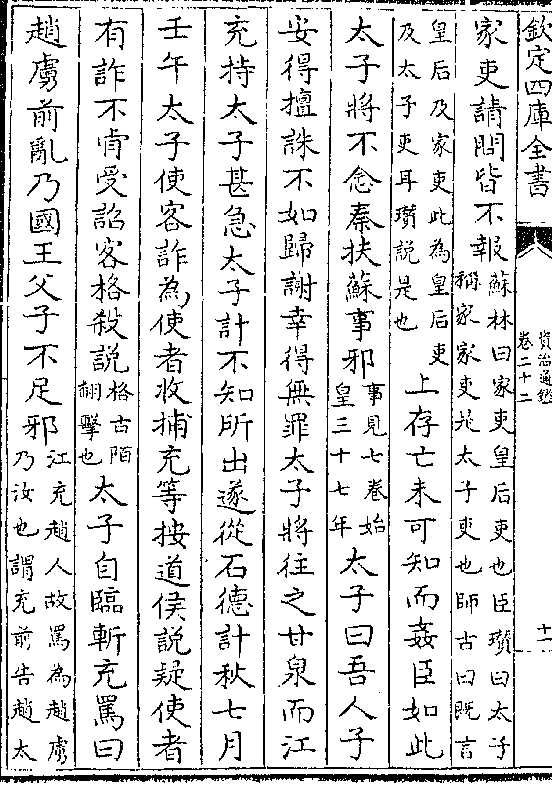 欽定四庫全書
資治通鑑
卷二十二
十一
家吏請問皆不報蘇林曰家吏皇后吏也臣瓚曰太子
稱家家吏是太子吏也師古曰既言
皇后及家吏此為皇后吏
及太子吏耳瓚說是也上存亡未可知而姦臣如此
太子將不念秦扶蘇事邪事見七卷始
皇三十七年太子曰吾人子
安得擅誅不如歸謝幸得無罪太子將往之甘泉而江
充持太子甚急太子計不知所出遂從石德計秋七月
壬午太子使客詐為使者收捕充等按道侯說疑使者
有詐不肯受詔客格殺說格古陌
翻擊也太子自臨斬充罵曰
趙虜前亂乃國王父子不足邪江充趙人故罵為趙虜
乃汝也謂充前告趙太